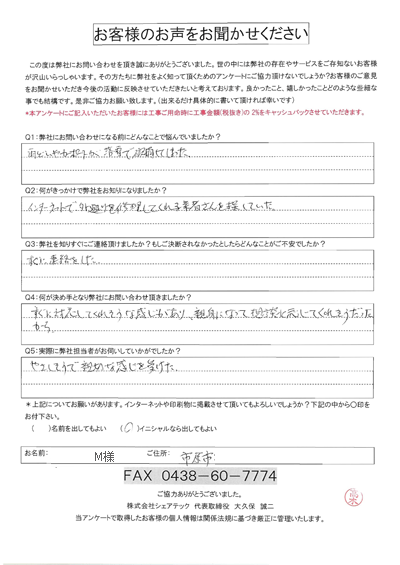 お客様のお声をお聞かせください
この度は弊社にお問い合わせを頂き誠にありがとうございました。世の中には弊社の存在やサービスをご存知ないお客様
が沢山いらっしゃいます。その方たちに弊社をよく知って頂くためのアンケートにご協力頂けないでしょうか?お客様のご意見
をお聞かせいただき今後の活動に反映させていただきたいと考えております。良かったこと、嬉しかったことどのような些細な
事でも結構です。是非ご協力お願い致します。(出来るだけ具体的に書いて頂ければ幸いです)
*本アンケートにご記入いただいたお客様には工事ご用命時に工事金額(税抜き)の2%をキャッシュバックさせていただきます。
Q1:弊社にお問い合わせになる前にどんなことで悩んでいましたか?
Q2:何がきっかけで弊社をお知りになりましたか?
インターネットで を修理してくれる業者さんを探していた。
Q3:弊社を知りすぐにご連絡頂けましたか?もしご決断されなかったとしたらどんなことがご不安でしたか?
すぐに連絡をした。
Q4:何が決め手となり弊社にお問い合わせ頂きましたか?
すぐに対応してくれそうな感じがあり、親身になって相談に応じてくれそうだった
から。
Q5:実際に弊社担当者がお伺いしていかがでしたか?
やさしそうで親切な感じを受けた。
*上記についてお願いがあります。インターネットや印刷物に掲載させて頂いてもよろしいでしょうか?下記の中から〇印を
お付下さい。
( )名前を出してもよい (〇)イニシャルなら出してもよい
お名前: M様 ご住所: 市原市
FAX 0438-60-7774
ご協力ありがとうございました。
株式会社シェアテック 代表取締役 大久保 誠二
当アンケートで取得したお客様の個人情報は関係法規に基づき厳正に管理いたします。